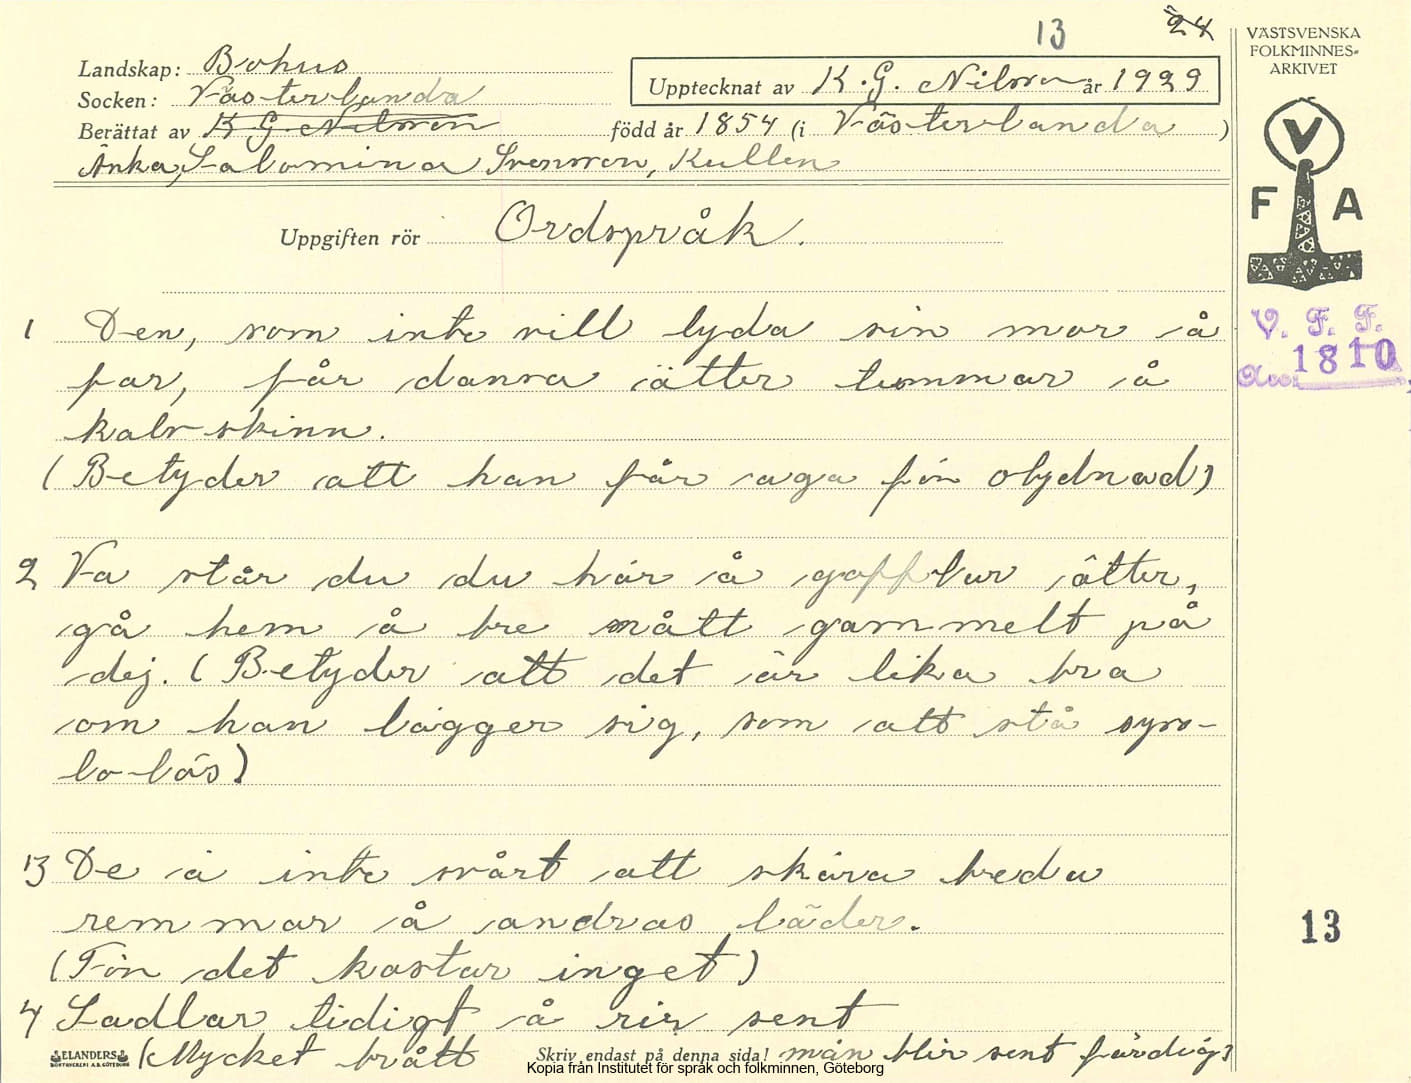 13 24
VÄSTSVENSKA
FOLKMINNES-
ARKIVET
Landskap: Bohus
Upptecknat av K. G. Nilsson år 1929
Socken: Västerlanda
Berättat av K G. Nilsson född år 1854 (i Västerlanda )
Änka, Salomina Svensson, Kullen
V
F A
Uppgiften rör Ordspråk.
V. F. F.
Acc. 1810
1 Den, som inte vill lyda sin mor å
far, får dansa ätter tummar å
kalv skinn.
(Betyder att han får aga för olydnad)
2 Va står du du här å gapflur ätter,
gå hem å bre nått gammelt på
dej. (Betyder att det är lika bra
om han lägger sig, som att stå syss-
lo-lös)
13 De ä inte svårt att skära breda
remmar å andras läder.
13
(För det kostar inget)
4 Sadlar tidigt å rir sent
ELANDERS
BOKTRYCKERI A.B. GÖTEBORG
(Mycket brått Skriv endast på denna sida! män blir sent färdig)
Kopia från Institutet för språk och folkminnen, Göteborg